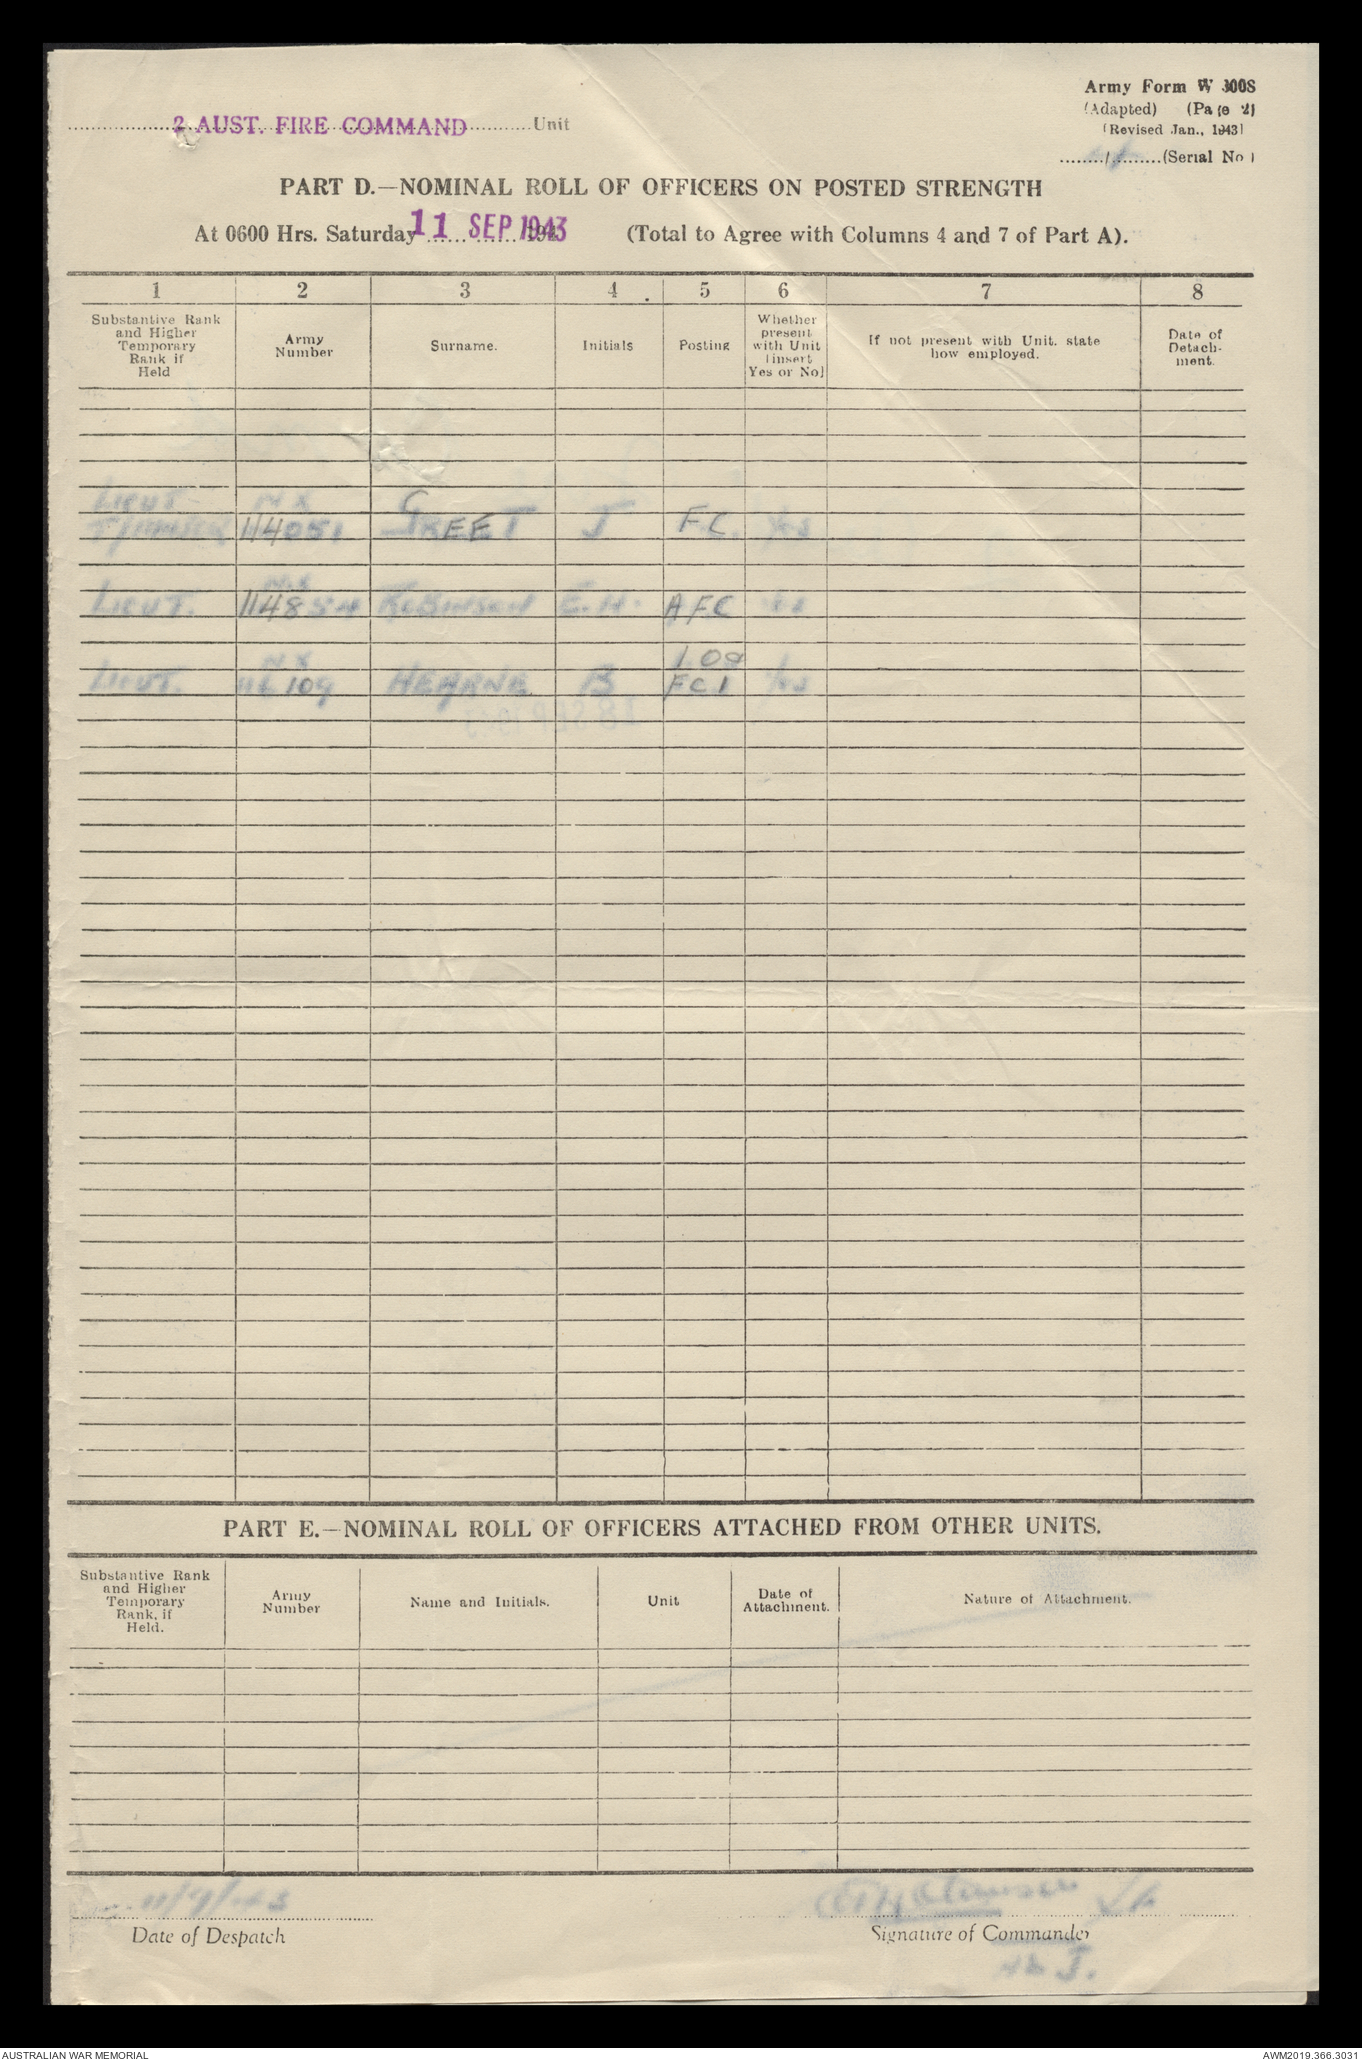 Army Form W 3008
(Adapted) (Page 2)
(Revised Jan., 1943)
2 AUST. FIRE COMMAND Unit
(Serial No )
PART D.—NOMINAL ROLL OF OFFICERS ON POSTED STRENGTH
At 0600 Hrs. Saturday 11 SEP 1943 (Total to Agree with Columns 4 and 7 of Part A).
1 2 3 4 5 6 7 8
Substantive Rank and Higher Temporary Rank if Held
Army Number
Surname.
Initials
Posting
Whether present with Unit (insert Yes or No)
If not present with Unit. state how employed.
Date of Detach-ment.
LIEUT NX
114051 GREET J F.C. Yes
NX
LIEUT. 114854 ROBINSON E.H. AFC Yes
NX
LIEUT. 116109 HEARNE B FC1 Yes
18 SEP 1943
PART E.—NOMINAL ROLL OF OFFICERS ATTACHED FROM OTHER UNITS.
Substantive Rank and Higher Temporary Rank, if Held.
Army Number
Name and Initials.
Unit
Date of Attachment.
Nature of Attachment.
11/9/43
Date of Despatch
Signature of Commander
AUSTRALIAN WAR MEMORIAL
AWM2019.366.3031